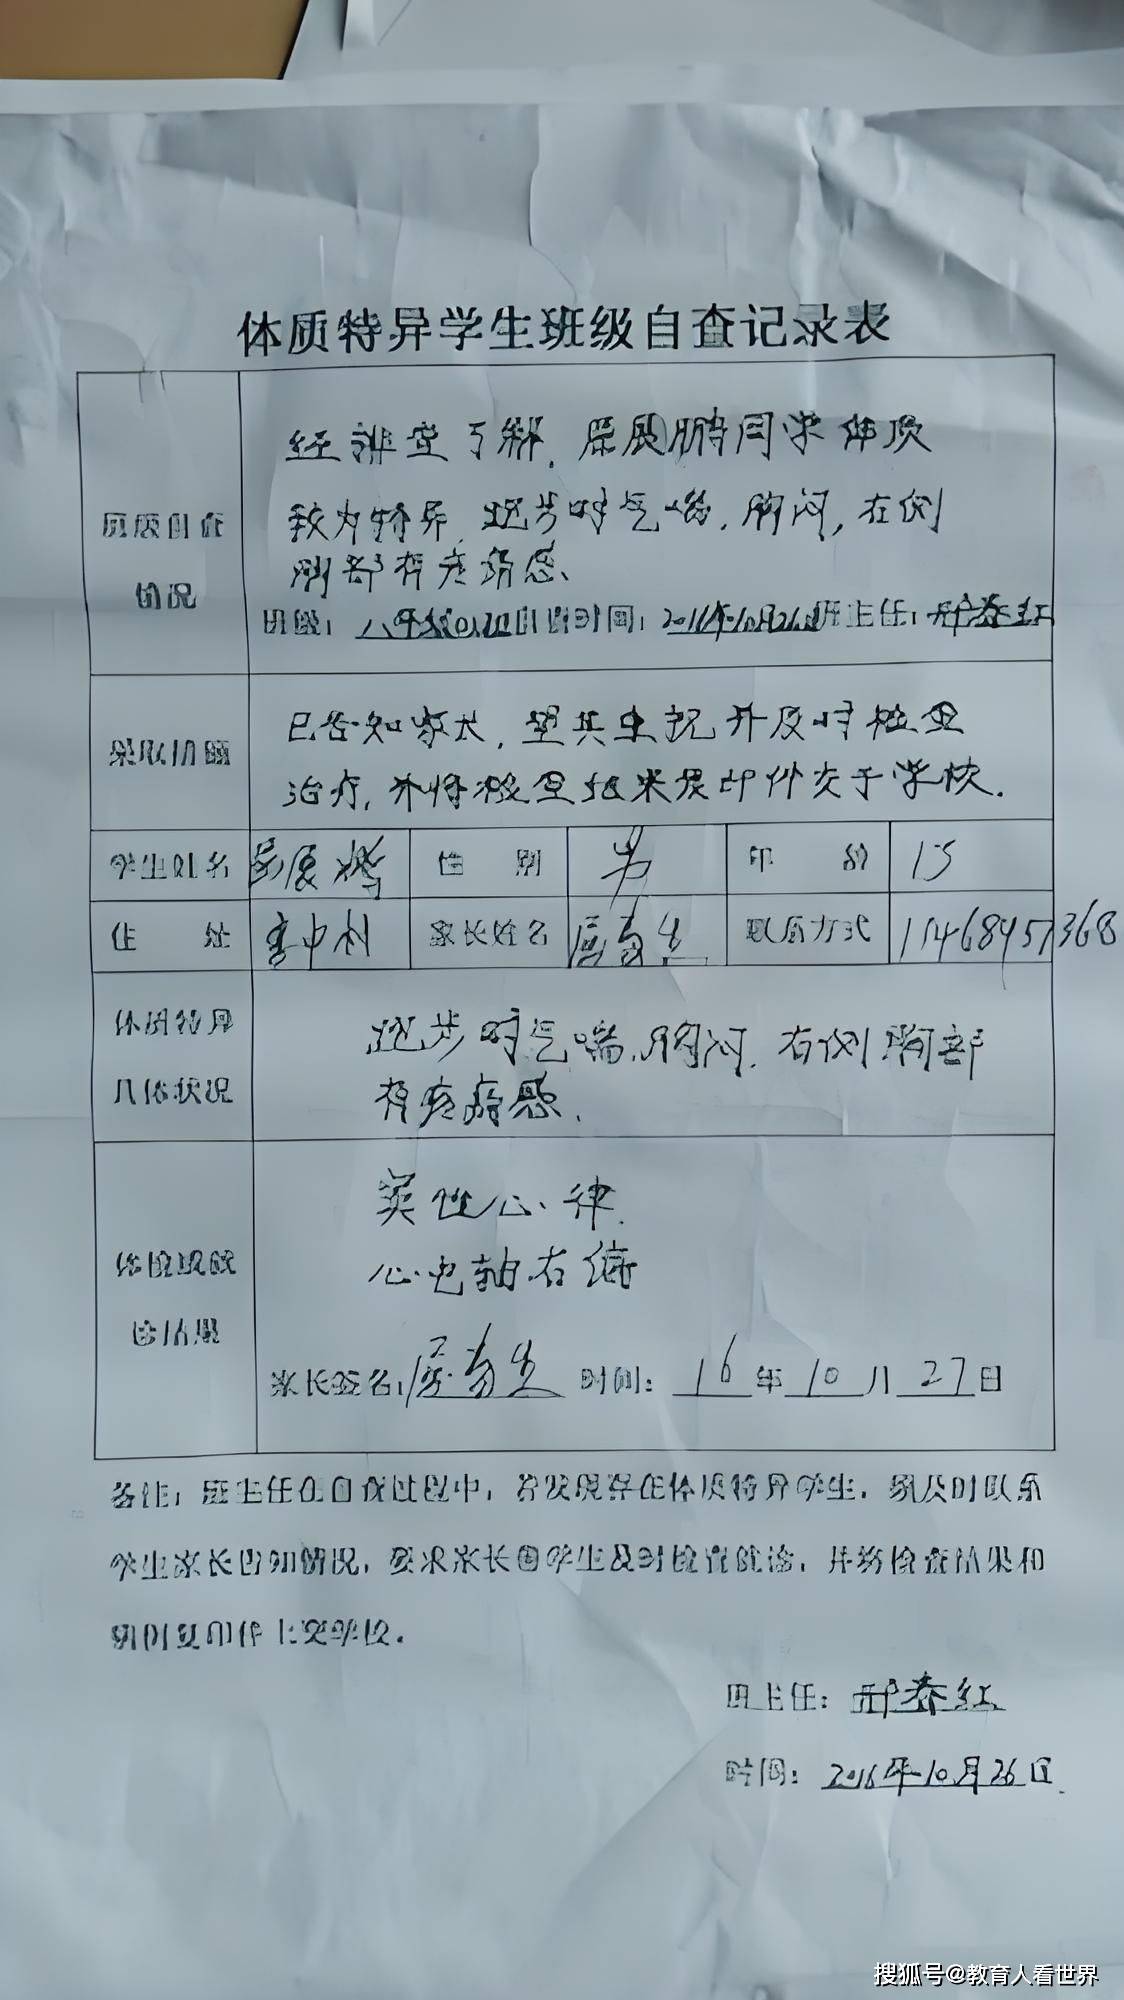 体质特异学生班级自查记录表
经排查了解,屈展鹏同学体质
自查
情况
较为特异,跑步时气喘,胸闷,右侧
胸部有疼痛感、
班级: 八年级 自查时间: 2016年10月26日 班主任: 邢春红
采取措施
已告知家长,望其重视并及时检查
治疗,并将检查结果复印件交于学校.
学生姓名 屈展鹏 性别 男 年龄 13
住址 村 家长姓名 屈 生 联系方式
体质特异
具体状况
跑步时气喘,胸闷.右侧胸部
有疼痛感.
体检或就
诊结果
窦性心律.
心电轴右偏
家长签名: 屈 生 时间: 16年10月27日
备注:班主任在自查过程中,若发现存在体质特异学生,须及时联系
学生家长告知情况,要求家长带学生及时检查就诊,并将检查结果和
病例复印件上交学校.
班主任: 邢春红
时间: 2016年10月26日
搜狐号@教育人看世界